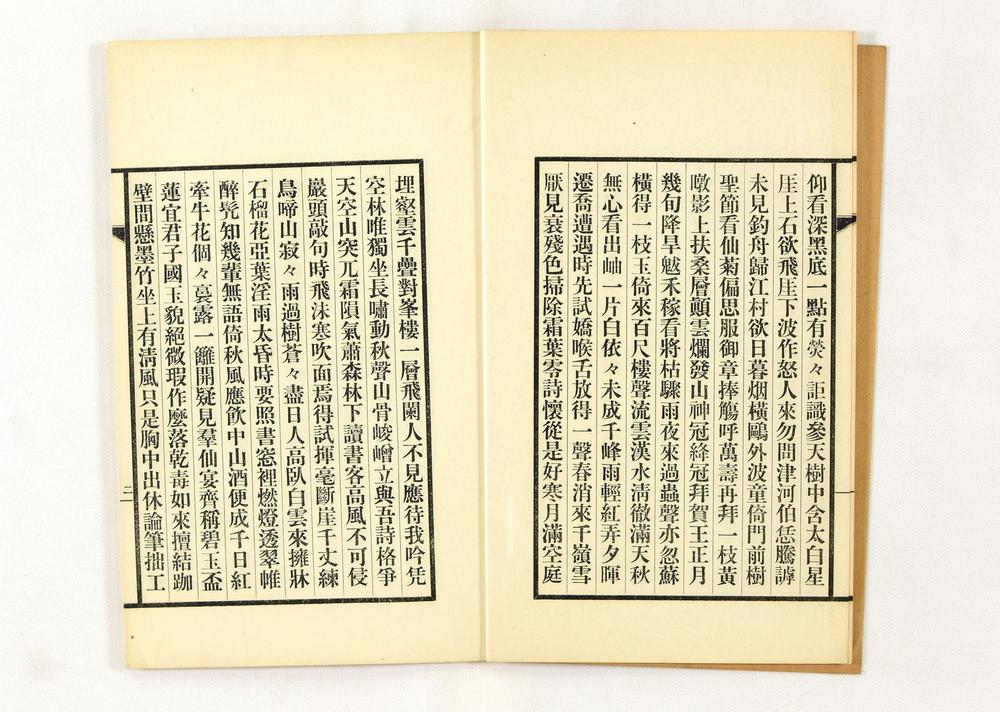 仰看深黑底一點有熒々詎識參天樹中含太白星
厓上石欲飛厓下波作怒人來勿問津河伯恁騰謔
未見釣舟歸江村欲日暮烟橫鷗外波童倚門前樹
聖節看仙菊偏思服御章捧觴呼萬壽再拜一枝黃
暾影上扶桑層顚雲爛發山神冠絳冠拜賀王正月
幾旬降旱魃禾稼看將枯驟雨夜來過蟲聲亦忽蘇
橫得一枝玉倚來百尺樓聲流雲漢水淸徹滿天秋
無心看出岫一片白依々未成千峰雨輕紅弄夕暉
遷喬遭遇時先試嬌喉舌放得一聲春消來千嶺雪
厭見衰殘色掃除霜葉零詩懷從是好寒月滿空庭
埋壑雲千疊對峯樓一層飛闌人不見應待我吟凭
空林唯獨坐長嘯動秋聲山骨峻嶒立與吾詩格爭
天空山突兀霜隕氣蕭森林下讀書客高風不可侵
巖頭敲句時飛沫寒吹面焉得試揮毫斷崖千丈練
鳥啼山寂々雨過樹蒼々盡日人高臥白雲來擁牀
石榴花亞葉淫雨太昏時要照書窓裡燃燈透翠帷
醉髡知幾輩無語倚秋風應飮中山酒便成千日紅
牽牛花個々裛露一籬開疑見羣仙宴齊稱碧玉盃
蓮宜君子國玉貌絕微瑕作麼落乾毒如來擅結跏
壁間懸墨竹坐上有淸風只是胸中出休論筆拙工
三